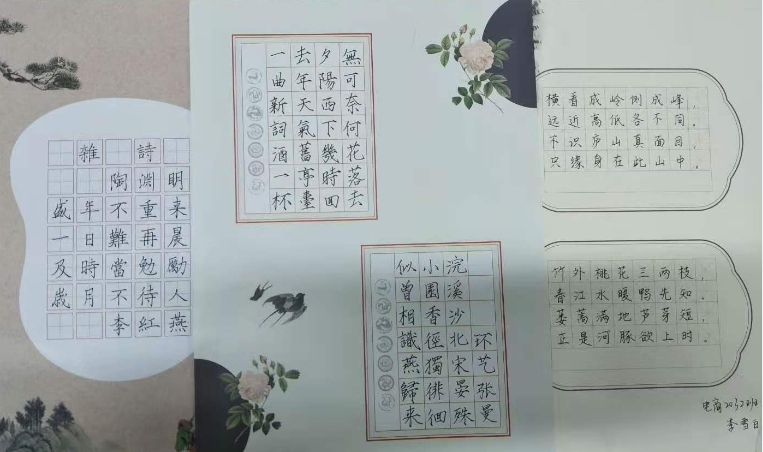 雜詩
陶淵明
盛年不重来
一日難再晨
及時當勉勵
歲月不待人
李紅燕
無可奈何花落去
夕陽西下幾時回
去年天氣舊亭臺
一曲新詞酒一杯
环艺张曼
浣溪沙北宋晏殊
小園香徑獨徘徊
似曾相識燕歸来
横看成岭侧成峰，
远近高低各不同。
不识庐山真面目，
只缘身在此山中。
竹外桃花三两枝，
春江水暖鸭先知。
蒌蒿满地芦芽短，
正是河豚欲上时。
电商